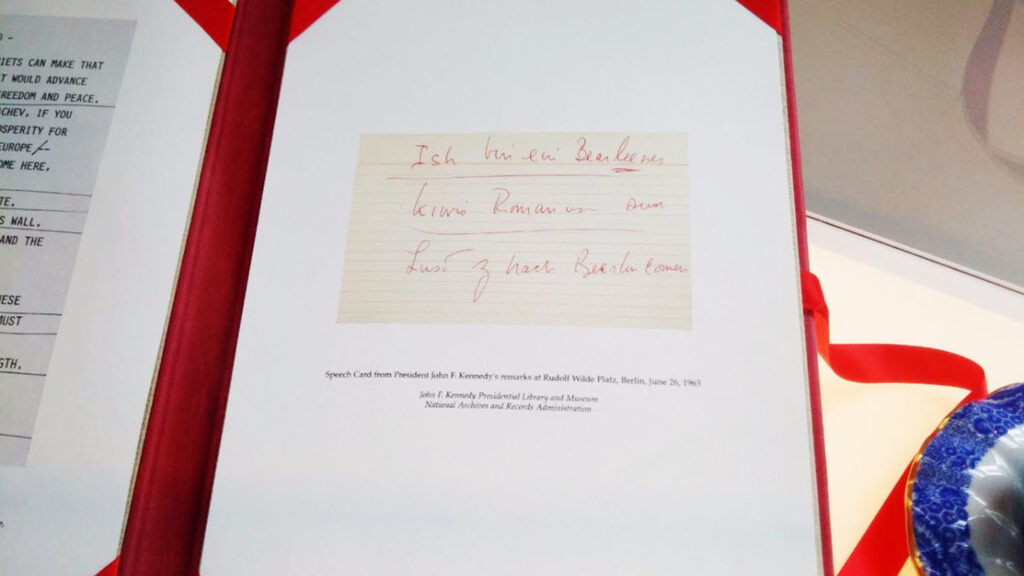 IETS CAN MAKE THAT
T WOULD ADVANCE
REEDOM AND PEACE.
ACHEV, IF YOU
OSPERITY FOR
EUROPE
OME HERE,
TE.
S WALL.
AND THE
ESE
MUST
GTH,
Ish bin ein Bearleener
kiwis Romanus sum
Lust z nach Bearlin comen
Speech Card from President John F. Kennedy's remarks at Rudolf Wilde Platz, Berlin, June 26, 1963
John F. Kennedy Presidential Library and Museum
National Archives and Records Administration